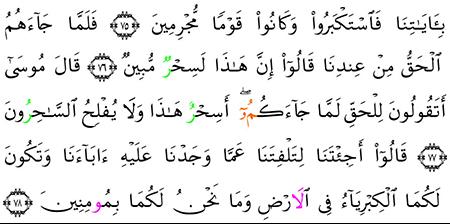 بِـَٔايَٰتِنَا فَٱسْتَكْبَرُوا۟ وَكَانُوا۟ قَوْمًا مُّجْرِمِينَ ٧٥ فَلَمَّا جَآءَهُمُ
ٱلْحَقُّ مِنْ عِندِنَا قَالُوٓا۟ إِنَّ هَٰذَا لَسِحْرٌ مُّبِينٌ ٧٦ قَالَ مُوسَىٰٓ
أَتَقُولُونَ لِلْحَقِّ لَمَّا جَآءَكُمُۥٓ أَسِحْرٌ هَٰذَا وَلَا يُفْلِحُ ٱلسَّٰحِرُونَ
٧٧ قَالُوٓا۟ أَجِئْتَنَا لِتَلْفِتَنَا عَمَّا وَجَدْنَا عَلَيْهِ ءَابَآءَنَا وَتَكُونَ
لَكُمَا ٱلْكِبْرِيَآءُ فِى ٱلَارْضِ وَمَا نَحْنُ لَكُمَا بِمُومِنِينَ ٧٨